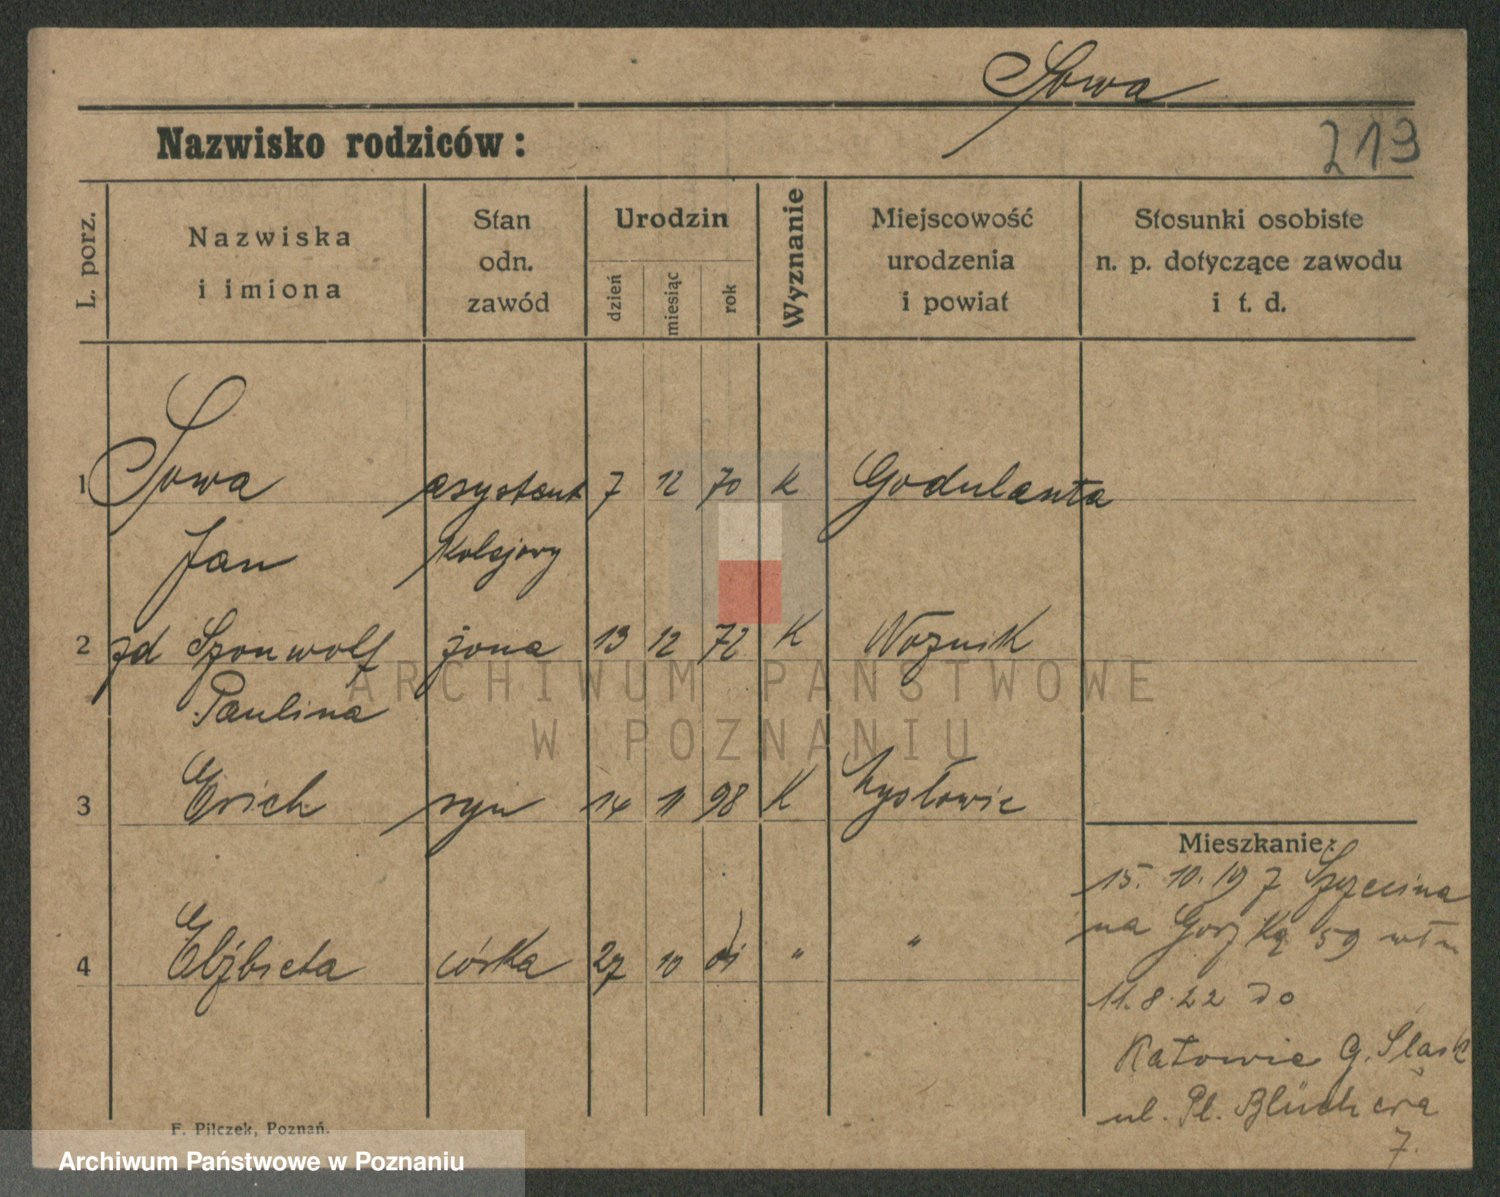 Sowa
Nazwisko rodziców:
213
L. porz.
Nazwiska
i imiona
Stan
odn.
zawód
Urodzin
dzień
miesiąc
rok
Wyznanie
Miejscowość
urodzenia
i powiat
Stosunki osobiste
n. p. dotyczące zawodu
i t. d.
1 Sowa asystent 7 12 70 K Godulanta
Jan kolejowy
2 zd Szonwolf żona 13 12 72 K Woznik
Paulina
3 Erich syn 14 11 98 K
4 Elżbieta córka 27 10 01 " "
Mieszkanie:
15. 10. 19 z
na 59
11.8.22 do
Katowic G. Śląsk
ul. Pl. Blüchera
7.
F. Pilczek, Poznań.
ARCHIWUM PAŃSTWOWE
W POZNANIU
Archiwum Państwowe w Poznaniu